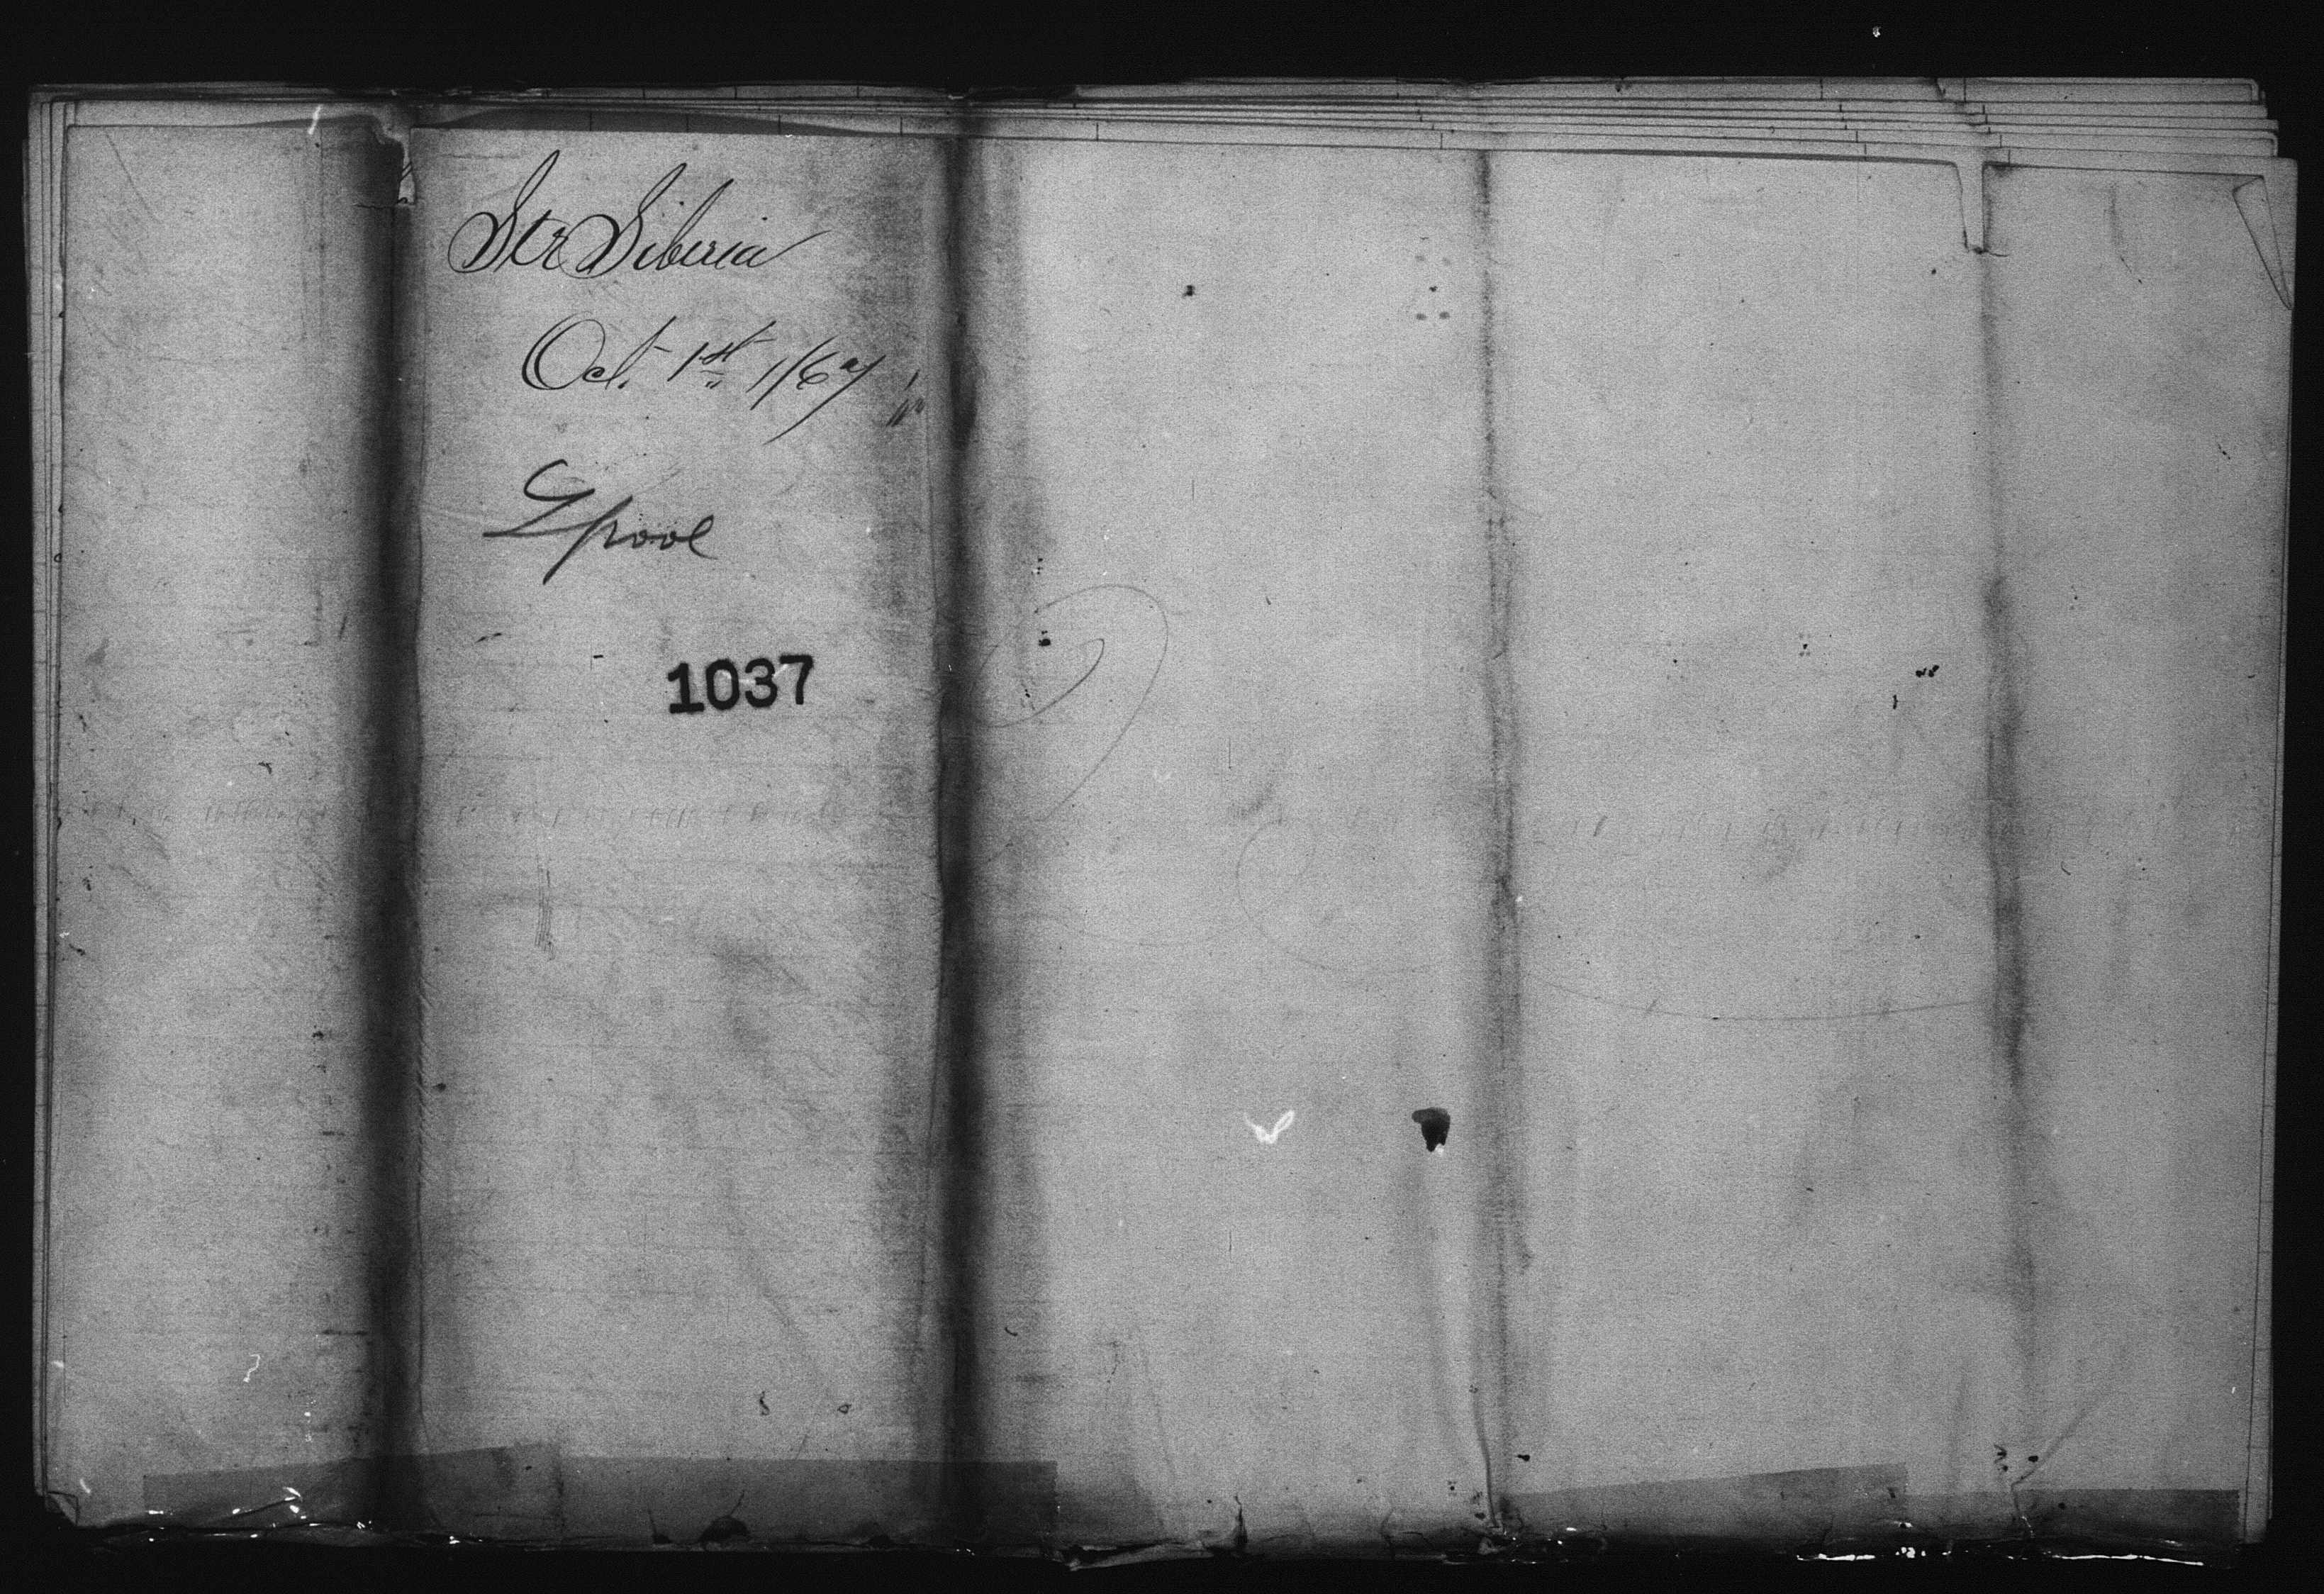 Str Siberia
Oct. 1st 1867
Lpool
1037